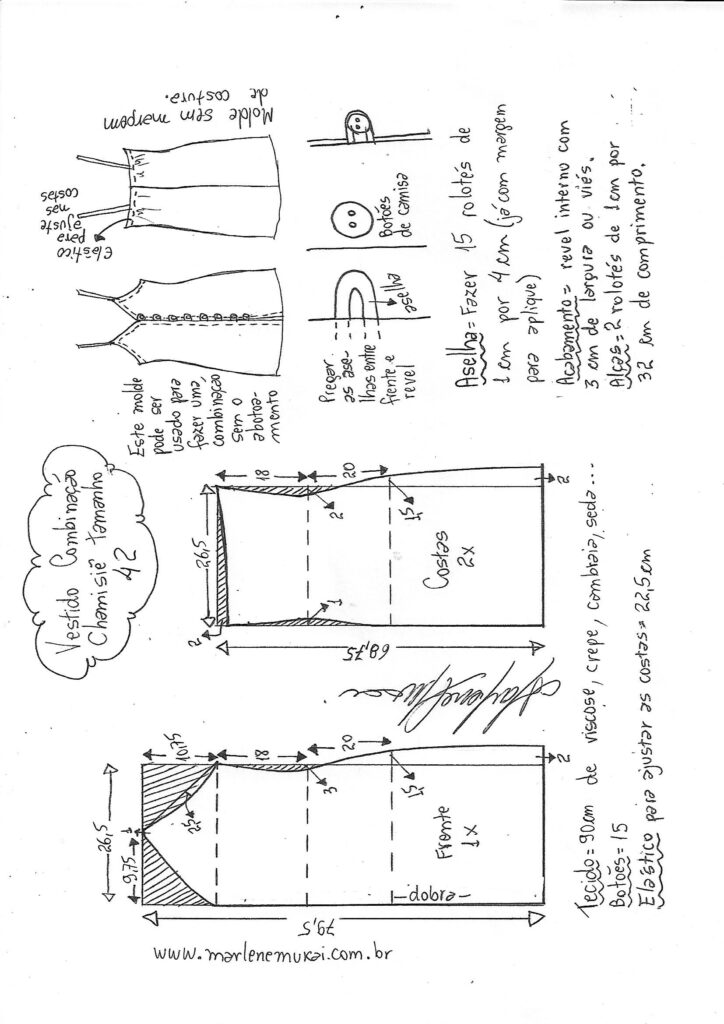 Vestido Combinação
Chamisiê tamanho
42
Este molde
pode ser
usado para
fazer uma
combinação
sem o
abotoa-
mento
Elástico
para
ajuste
nas
costas
Molde sem margem
de costura.
Pregar
as ase-
lhas entre
frente e
revel
aselha
Botões
de camisa
Aselha = Fazer 15 rolotés de
1 cm por 4 cm (já com margem
para aplique)
Acabamento = revel interno com
3 cm de largura ou viés.
Alças = 2 rolotés de 1 cm por
32 cm de comprimento.
26,5
9,75
1
10,75
2,5
18
20
3
1,5
2
Frente
1x
-dobra-
79,5
www.marlenemukai.com.br
26,5
2
18
20
2
1,5
1
2
Costas
2x
68,75
Tecido = 90cm de viscose, crepe, cambraia, seda...
Botões = 15
Elástico para ajustar as costas = 22,5cm